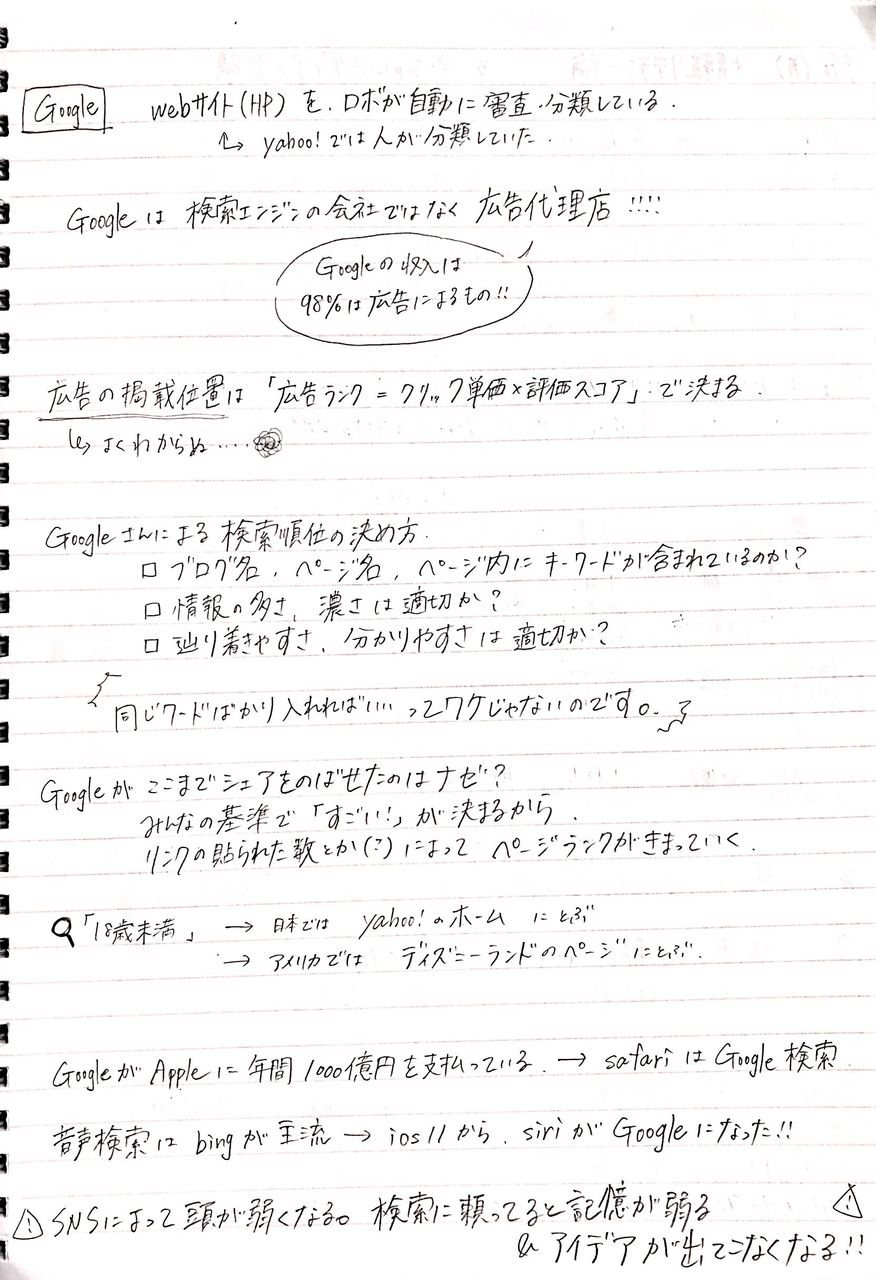 Google
webサイト(HP)を、ロボが自動に審査・分類している.
↳ yahoo!では人が分類していた.
Googleは 検索エンジンの会社ではなく 広告代理店 !!!!
Googleの収入は
98%は広告によるもの!!
広告の掲載位置は「広告ランク = クリック単価×評価スコア」で決まる.
↳ よくわからぬ....
Googleさんによる 検索順位の決め方.
□ ブログ名、ページ名、ページ内にキーワードが含まれているのか?
□ 情報の多さ、濃さは適切か?
□ 辿り着きやすさ、分かりやすさは適切か?
同じワードばかり入れればいい…ってワケじゃないのです。
Googleが ここまでシェアをのばせたのはナゼ?
みんなの基準で「すごい!」が決まるから.
リンクの貼られた数とか(?)によって ページランクがきまっていく.
「18歳未満」 → 日本では yahoo!のホーム にとぶ
→ アメリカでは ディズニーランドのページにとぶ.
GoogleがAppleに年間1000億円を支払っている. → safariはGoogle検索.
音声検索はbingが主流 → ios11から、siriがGoogleになった!!
⚠ SNSによって頭が弱くなる。検索に頼ってると記憶が弱る ⚠
& アイデアが出てこなくなる!!